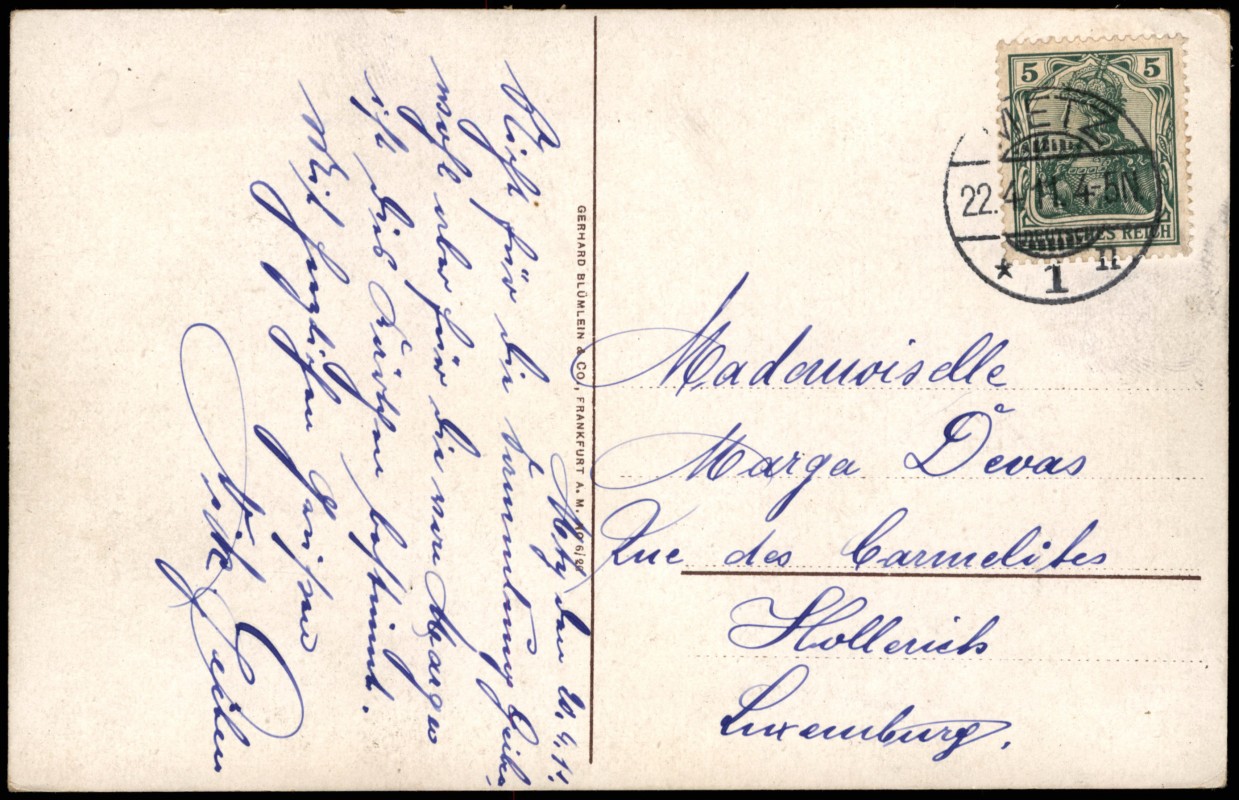 Metz, den 20.4.11.
Nicht für die Sammlung
wohl aber für die neue Marga
ist dies Kärtchen bestimmt.
Mit herzlichen Grüßen
GERHARD BLÜMLEIN & CO., FRANKFURT A. M.
5 5
DEUTSCHES REICH
METZ
22.4.11. 4-5N
* 1 n
Mademoiselle
Marga Devas
Rue des Carmelites
Hollerich
Luxemburg.